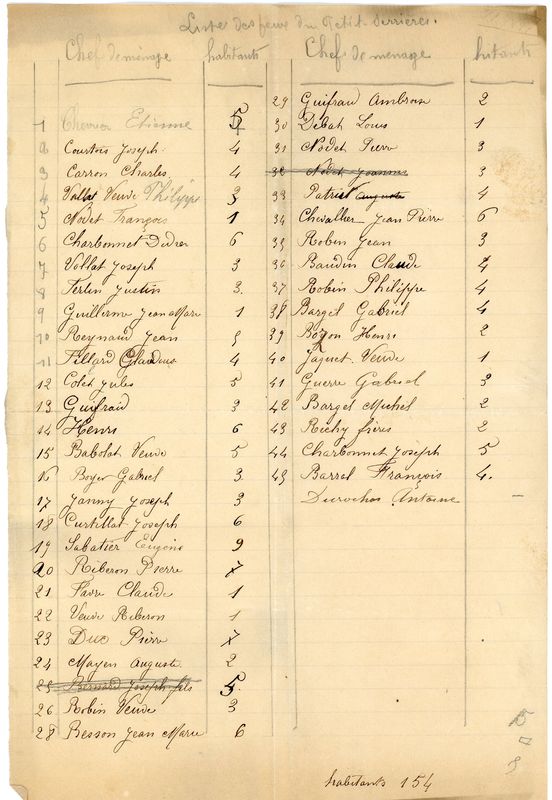 Liste des feux du Petit Derrières.
Chef de ménage habitants
1 Chevrier Etienne 5
2 Courtois Joseph 4
3 Carron Charles 4
4 Vollat Veuve Philippe 3
5 Nodet François 1
6 Charbonnet Didier 6
7 Vollat Joseph 3
8 Ferlin Justin 3
9 Guillerme Jean Marie 1
10 Reynaud Jean
11 Fillard Glaudius 4
12 Colet Jules 5
13 Guifraid 3
14 Henri 6
15 Babolat Veuve 5
16 Boyer Gabriel 3
17 Janny Joseph 3
18 Curtillat Joseph 6
19 Sabatier Eugène 9
20 Riberon Pierre
21 Favre Claude 1
22 Veuve Riberon 1
23 Duc Pierre
24 Mayen Auguste 2
25 Bernard Joseph fils 5
26 Robin Veuve 3
28 Besson Jean Marie 6
Chef de ménage bitants
29 Guifraid Ambroise 2
30 Debat Louis 1
31 Nodet Pierre 3
32 Nodet Joannis 3
33 Patriat Auguste 4
34 Chevallier Jean Pierre 6
35 Robin Jean 3
36 Baudin Claude 4
37 Robin Philippe 4
38 Barget Gabriel 4
39 Bozon Henri 2
40 Jaquet Veuve 1
41 Guerre Gabriel 3
42 Barget Michel 2
43 Richy frères 2
44 Charbonnet Joseph 5
45 Barrel François 4.
Durochas Antoine –
habitants 154